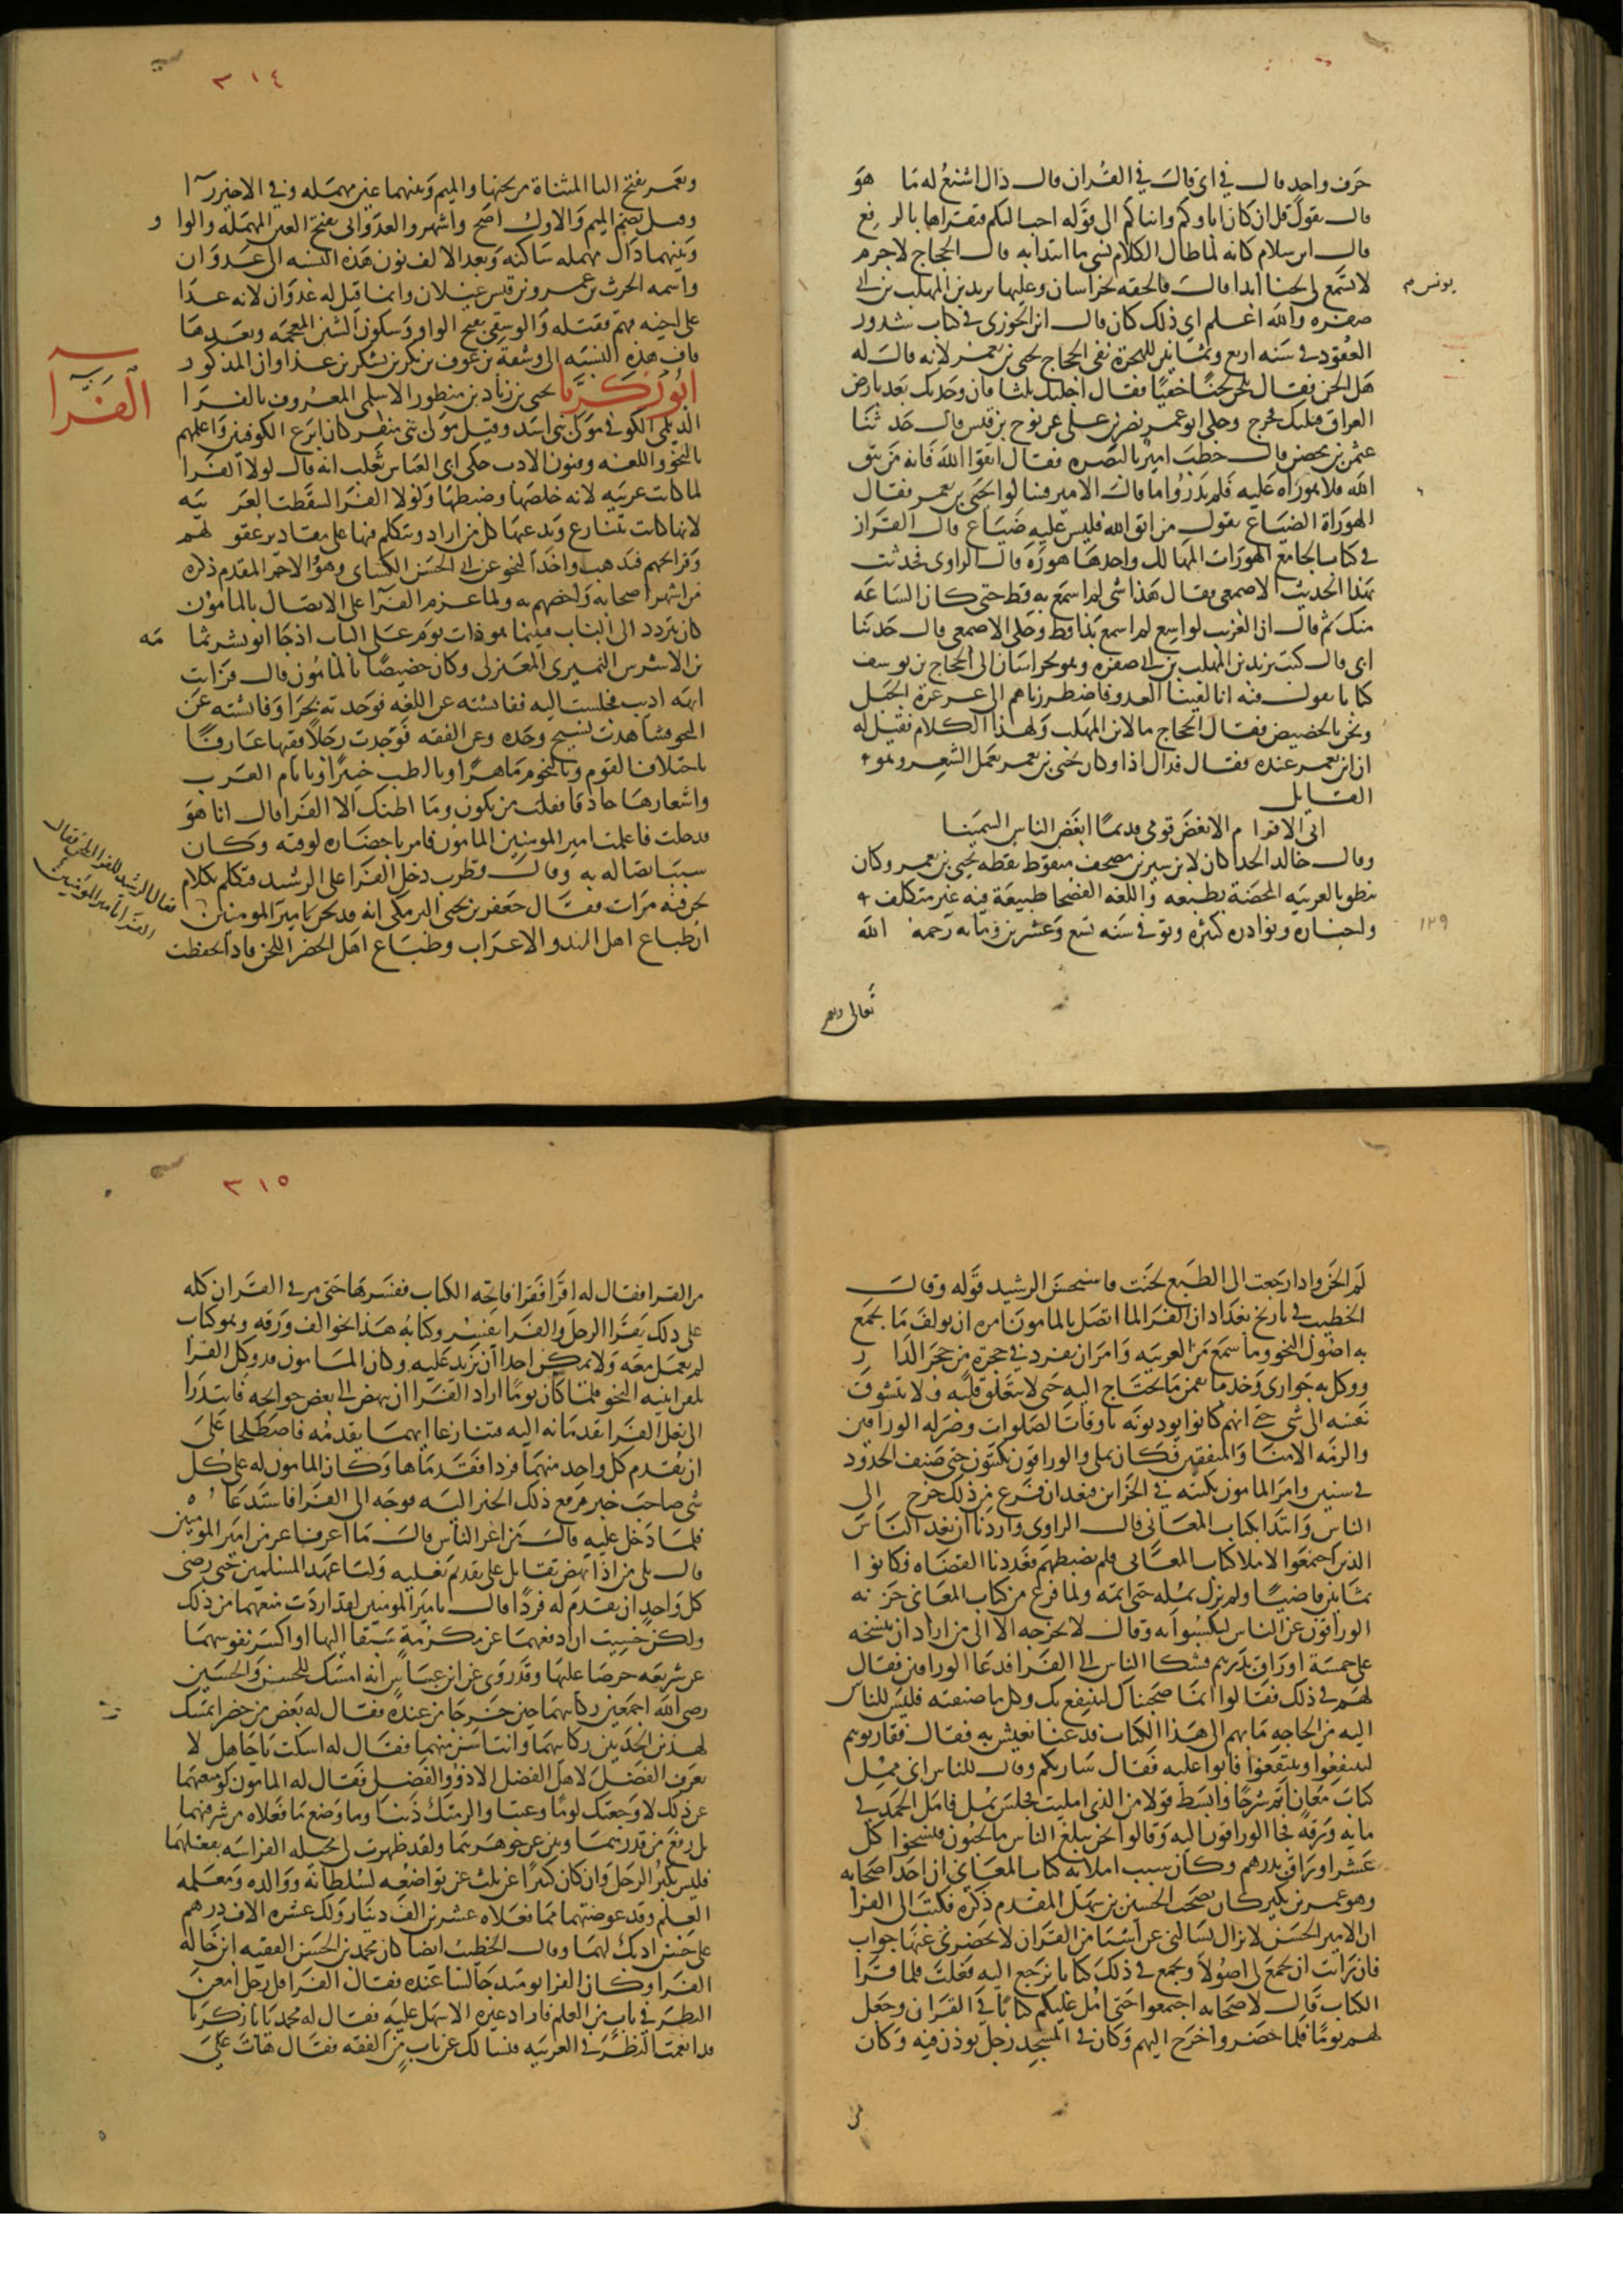 حرف واحد قال في اي قال في القران قال ذال اشنع له ما هو
قال يقول قل ان كان اباوكم وابناكم الى قوله احب اليكم فتقراها بالرفع
قال ابن سلام كانه لما طال الكلام نسي ما ابتدا به قال الحجاج لا جرم
لا تسمع لي لحنا ابدا قال فالحقه بخراسان وعليها يزيد بن المهلب بن ابي
يونس
صفره والله اعلم اي ذلك كان قال ابن الجوزي في كتاب شذور
العقود في سنه اربع وثمانين للهجرة نفى الحجاج يحيى بن يعمر لانه قال له
هل الحن فقال تلحن لحنا خفيا فقال اجلتك ثلثا فان وجدتك بعد بارض
العراق قتلتك فخرج وحكى ابو عمر نصر بن على عن نوح بن قيس قال حدثنا
عثمن بن محصن قال خطب امير بالبصره فقال اتقوا الله فانه من يتق
الله فلا هوراه عليه فلم يدروا ما قال الامير فسالوا يحيى بن يعمر فقال
الهوراة الضياع يقول من اتقى الله فليس عليه ضياع قال القزاز
في كتاب الجامع الهورات المهالك واحدها هوره قال الراوي فحدثت
بهذا الحديث الاصمعي فقال هذا شي لم اسمع به قط حتى كان الساعه
منك ثم قال ان الغريب لواسع لم اسمع بذا قط وحكى الاصمعي قال حدثنا
ابي قال كتب يزيد بن المهلب بن ابي صفره وهو بخراسان الى الحجاج بن يوسف
كتابا يقول فيه انا لقينا العدو فاضطررناهم الى عرعرة الجبل
ونحن بالحضيض فقال الحجاج ما لابن المهلب ولهذا الكلام فقيل له
ان ابن يعمر عنده فقال فذال اذا وكان يحيى بن يعمر يعمل الشعر وهو
القايل
ابى الاقوام الا بغض قومي قديما ابغض الناس السمينا
وقال خالد الحذا كان لابن سيرين مصحف منقوط نقطه يحيى بن يعمر وكان
ينطق بالعربيه المحضة بطبعه واللغه الفصحا طبيعة فيه غير متكلف
واخباره ونوادره كثيرة وتوفي سنه تسع وعشرين ومايه رحمه الله
١٢٩
تعالى ويعمر
٣١٤
ويعمر بفتح اليا المثناة من تحتها والميم وبينهما عين مهمله وفي الاخير را
وقيل بضم الميم والاول اصح واشهر والعدواني بفتح العين المهمله والواو
وبينهما دال مهمله ساكنه وبعد الالف نون هذه النسبه الى عدوان
واسمه الحرث بن عمرو بن قيس عيلان وانما قيل له عدوان لانه عدا
على اخيه فهم فقتله والوشقي بفتح الواو وسكون الشين المعجمه وبعدها
قاف هذه النسبه الى وشقة بن عوف بن بكر بن يشكر بن عدوان المذكور
الفرا
ابو زكريا يحيى بن زياد بن منظور الاسلمي المعروف بالفرا
الديلمي الكوفي مولى بني اسد وقيل مولى بني منقر كان ابرع الكوفيين واعلمهم
بالنحو واللغه وفنون الادب حكي ابي العباس ثعلب انه قال لولا الفرا
لما كانت عربيه لانه خلصها وضبطها ولولا الفرا لسقطت العربيه
لانها كانت تتنازع ويدعيها كل من اراد ويتكلم فيها على مقادير عقولهم
وقرايحهم فتذهب واخذ النحو عن ابي الحسن الكساي وهو والاحمر المقدم ذكره
من اشهر اصحابه واخصهم به ولما عزم الفرا على الاتصال بالمامون
كان يتردد الى الباب فبينما هو ذات يوم على الباب اذ جا ابو بشر ثمامه
بن الاشرس النميري المعتزلي وكان خصيصا بالمامون قال فرات
ابهه اديب فجلست اليه ففاتشته عن اللغه فوجدته بحرا وفاتشته عن
النحو فشاهدت نسيج وحده وعن الفقه فوجدت رجلا فقيها عارفا
باختلاف القوم وبالنجوم ماهرا وبالطب خبيرا وبايام العرب
واشعارها حاذقا فقلت من تكون وما اظنك الا الفرا قال انا هو
فدخلت فاعلمت امير المومنين المامون فامر باحضاره لوقته وكان
سبب اتصاله به وقال قطرب دخل الفرا على الرشيد فتكلم بكلام
لحن فيه مرات فقال جعفر بن يحيى البرمكي انه قد لحن يا امير المومنين
فقال الرشيد للفرا اتلحن فقال
الفرا يا امير المومنين
ان طباع اهل البدو الاعراب وطباع اهل الحضر اللحن فاذا تحفظت
لم الحن واذا رجعت الى الطبع لحنت فاستحسن الرشيد قوله وقال
الخطيب في تاريخ بغداد ان الفرا لما اتصل بالمامون امره ان يولف ما يجمع
به اصول النحو وما سمع من العربيه وامر ان يفرد في حجرة من حجر الدار
ووكل به جواري وخدما يقمن بما يحتاج اليه حتى لا يتعلق قلبه ولا تتشوق
نفسه الى شي حتى انهم كانوا يوذنونه باوقات الصلوات وصير له الوراقين
والزمه الامنا والمنفقين فكان يملي والوراقون يكتبون حتى صنف الحدود
في سنين وامر المامون بكتبه في الخزاين فبعد ان فرغ من ذلك خرج الى
الناس وابتدا بكتاب المعاني قال الراوي واردنا ان نعد الناس
الذين اجتمعوا لاملا كتاب المعاني فلم نضبطهم فعددنا القضاه فكانوا
ثمانين قاضيا ولم يزل يمله حتى اتمه ولما فرغ من كتاب المعاني خزنه
الوراقون عن الناس ليكتسبوا به وقالوا لا نخرجه الا الى من اراد ان ننسخه
على خمسة اوراق بدرهم فشكا الناس الى الفرا فدعا الوراقين فقال
لهم في ذلك فقالوا انما صحبناك لننتفع بك وكل ما صنفته فليس للناس
اليه من الحاجه ما بهم الى هذا الكتاب فدعنا نعيش به فقال فقاربوهم
ينتفعوا وتنتفعوا فابوا عليه فقال ساريكم وقال للناس اني ممل
كتاب معان اتم شرحا وابسط قولا من الذي امليت فجلس يمل فامل الحمد في
مايه ورقة فجا الوراقون اليه وقالوا نحن نبلغ الناس ما يحبون فنسخوا كل
عشر اوراق بدرهم وكان سبب املايه كتاب المعاني ان احد اصحابه
وهو عمر بن بكير كان يصحب الحسن بن سهل المقدم ذكره فكتب الى الفرا
ان الامير الحسن لا يزال يسالني عن اشيا من القران لا يحضرني عنها جواب
فان رايت ان تجمع لي اصولا وتجمع في ذلك كتابا نرجع اليه فعلت فلما قرا
الكتاب قال لاصحابه اجتمعوا حتى امل عليكم كتابا في القران وجعل
لهم يوما فلما حضروا خرج اليهم وكان في المسجد رجل يوذن فيه وكان
من
٣١٥
من القرا فقال له اقرا فقرا فاتحه الكتاب ففسرها حتى مر في القران كله
على ذلك يقرا الرجل والفرا يفسر وكتابه هذا نحو الف ورقه وهو كتاب
لم يعمل مثله ولا يمكن احدا ان يزيد عليه وكان المامون قد وكل الفرا
يلقن ابنيه النحو فلما كان يوما اراد الفرا ان ينهض الى بعض حوايجه فابتدرا
الى نعل الفرا يقدمانه اليه فتنازعا ايهما يقدمه فاصطلحا على
ان يقدم كل واحد منهما فردا فقدماها وكان المامون له على كل
شي صاحب خبر فرفع ذلك الخبر اليه فوجه الى الفرا فاستدعاه
فلما دخل عليه قال من اعز الناس قال ما اعرف اعز من امير المومنين
قال بلى من اذا نهض تقاتل على تقديم نعليه وليا عهد المسلمين حتى رضي
كل واحد ان يقدم له فردا قال يا امير المومنين لقد اردت منعهما من ذلك
ولكن خشيت ان ادفعهما عن مكرمة سبقا اليها او اكسر نفوسهما
عن شريعه حرصا عليها وقد روي عن ابن عباس انه امسك للحسن والحسين
رضي الله اجمعين ركابيهما حين خرجا من عنده فقال له بعض من حضر اتمسك
لهذين الحدثين ركابيهما وانت اسن منهما فقال له اسكت يا جاهل لا
يعرف الفضل لاهل الفضل الا ذوو الفضل فقال له المامون لو منعتهما
عن ذلك لاوجعتك لوما وعتبا والزمتك ذنبا وما وضع ما فعلاه من شرفهما
بل رفع من قدرهما وبين عن جوهرهما ولقد ظهرت لي مخيله الفراسه بفعلهما
فليس يكبر الرجل وان كان كبيرا عن ثلث عن تواضعه لسلطانه ووالده ومعلمه
العلم وقد عوضتهما مما فعلاه عشرين الف دينار ولك عشره الاف درهم
على حسن ادبك لهما وقال الخطيب ايضا كان محمد بن الحسن الفقيه ابن خاله
الفرا وكان الفرا يوما عنده جالسا فقال الفرا قل رجل امعن
النظر في باب من العلم فاراد غيره الا سهل عليه فقال له محمد يا ابا زكريا
قد انعمت النظر في العربيه فنسالك عن باب من الفقه فقال هات على